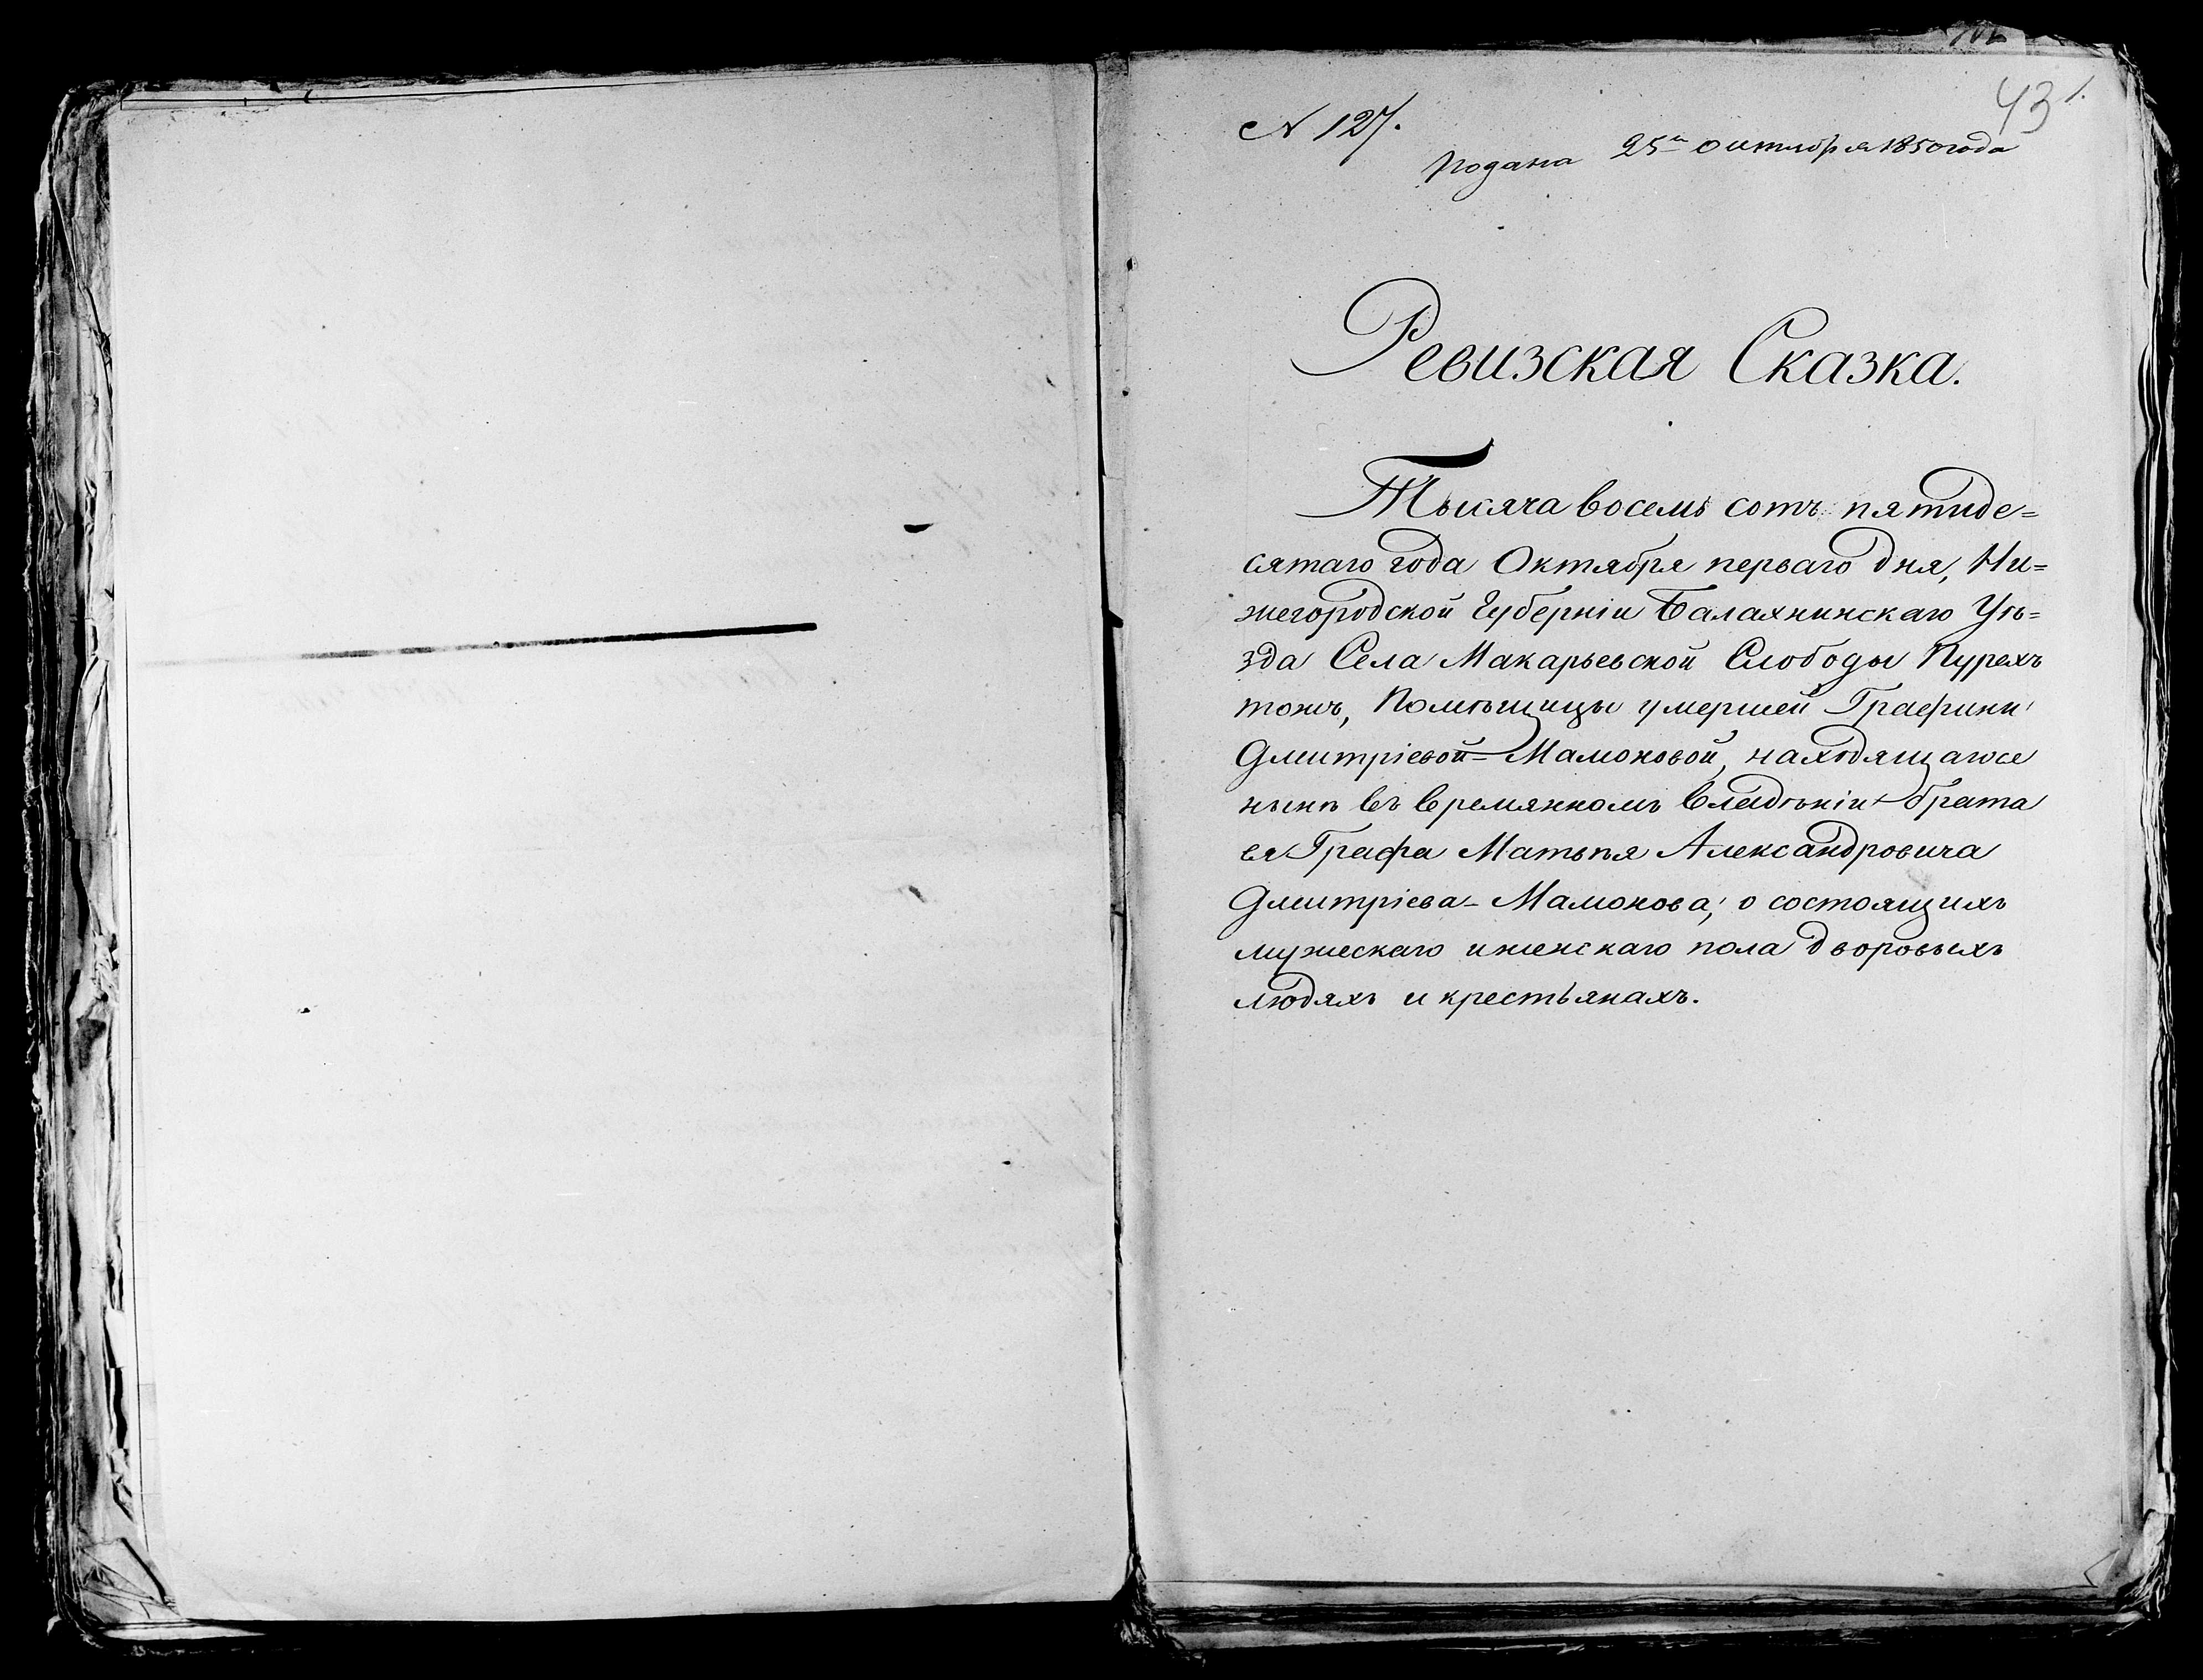 43 1.
№ 127.
Подана 25го Октября 1850 года
Ревизская Сказка.
Тысяча восемь сотъ пятиде=
сятаго года Октября перваго дня, Ни=
жегородской Губерніи Балахнинскаго Уѣ=
зда Села Макарьевской Слободы Пурехъ
тожъ, Помѣщицы умершей Графини
Дмитріевой-Мамоновой, находящагося
нынѣ въ времянномъ владѣніи брата
ея Графа Матвѣя Александровича
Дмитріева-Мамонова; о состоящихъ
мужескаго и женскаго пола дворовыхъ
людяхъ и крестьянахъ.